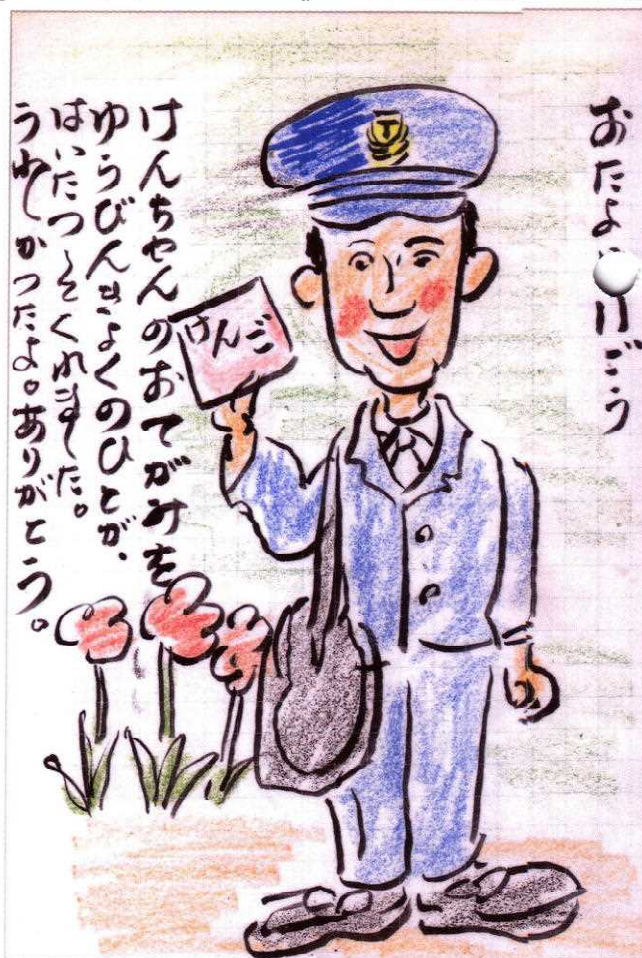 おたより ごう
けんちゃんのおてがみを
ゆうびんきょくのひとが、
はいたつしてくれました。
うれしかったよ。ありがとう。
けんご